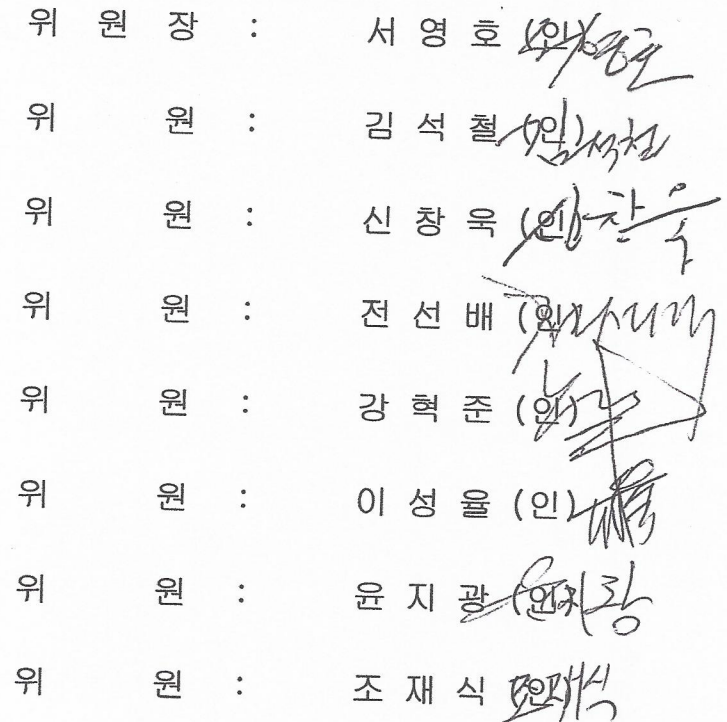 위 원 장 : 서 영 호 (인)
위 원 : 김 석 철 (인)
위 원 : 신 창 욱 (인)
위 원 : 전 선 배 (인)
위 원 : 강 혁 준 (인)
위 원 : 이 성 율 (인)
위 원 : 윤 지 광 (인)
위 원 : 조 재 식 (인)